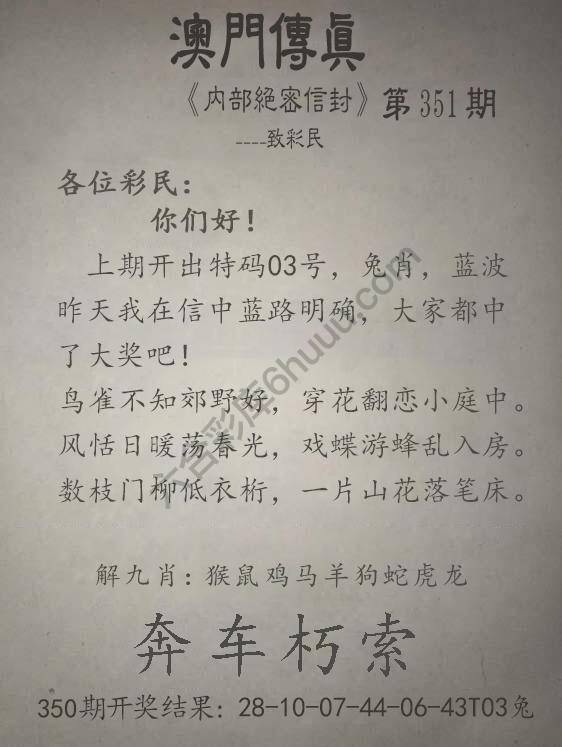 澳門傳眞
《内部絕密信封》第351期
----致彩民
各位彩民：
你们好！
上期开出特码03号，兔肖，蓝波
昨天我在信中蓝路明确，大家都中
了大奖吧！
鸟雀不知郊野好，穿花翻恋小庭中。
风恬日暖荡春光，戏蝶游蜂乱入房。
数枝门柳低衣桁，一片山花落笔床。
六合彩库6huuu.com
解九肖：猴鼠鸡马羊狗蛇虎龙
奔车朽索
350期开奖结果：28-10-07-44-06-43T03兔